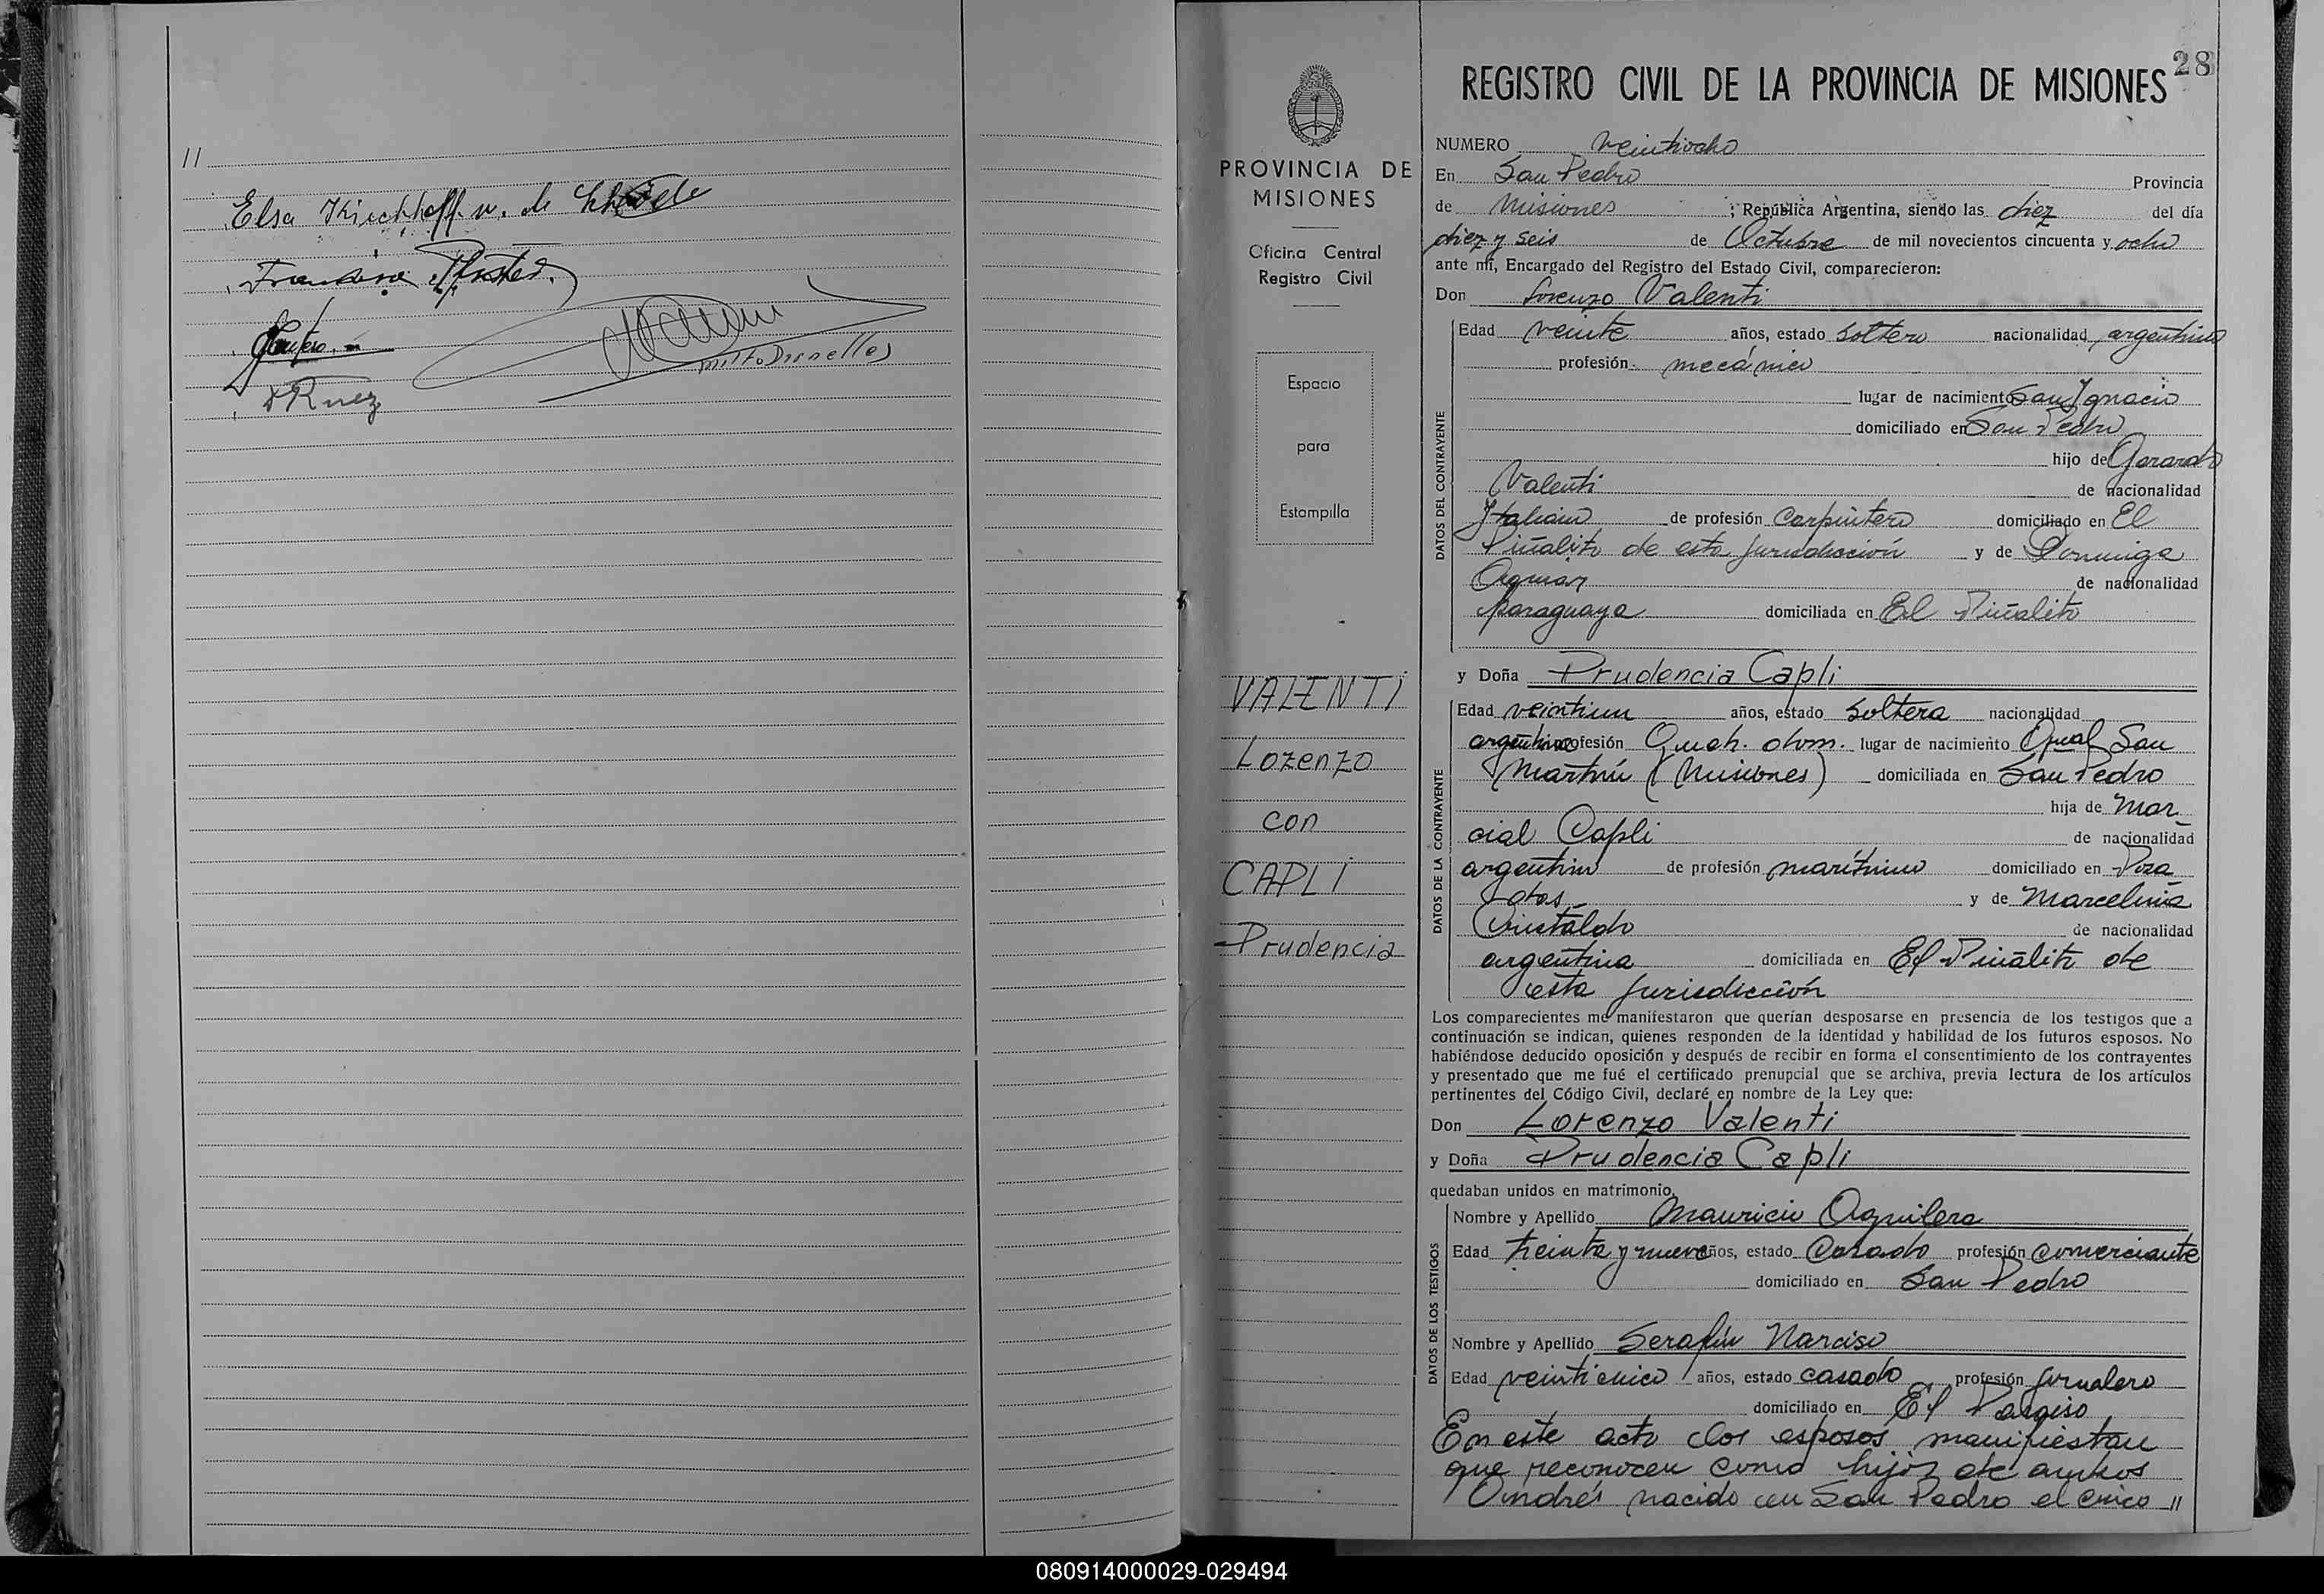 11
Elsa Kirchhoff v. de
Francisco
Milto Dornelles
28
PROVINCIA DE
MISIONES
Oficina Central
Registro Civil
Espacio
para
Estampilla
VALENTI
Lorenzo
con
CAPLI
Prudencia
REGISTRO CIVIL DE LA PROVINCIA DE MISIONES
NUMERO veintiocho
En San Pedro Provincia
de Misiones ; República Argentina, siendo las diez del día
diez y seis de Octubre de mil novecientos cincuenta y ocho
ante mí, Encargado del Registro del Estado Civil, comparecieron:
Don Lorenzo Valenti
DATOS DEL CONTRAYENTE
Edad veinte años, estado soltero nacionalidad argentino
profesión mecánico
lugar de nacimiento San Ignacio
domiciliado en San Pedro
hijo de Gerardo
Valenti de nacionalidad
Italiano de profesión Carpintero domiciliado en El
Piñalito de esta jurisdicción y de Dominga
Aguiar de nacionalidad
paraguaya domiciliada en El Piñalito
y Doña Prudencia Capli
DATOS DE LA CONTRAYENTE
Edad veintiun años, estado soltera nacionalidad
argentina profesión Queh. dom. lugar de nacimiento Gral San
Martín (Misiones) domiciliada en San Pedro
hija de Mar
cial Capli de nacionalidad
argentino de profesión marítimo domiciliado en Posa
das y de Marcelina
Cristaldo de nacionalidad
argentina domiciliada en El Piñalito de
esta jurisdicción
Los comparecientes me manifestaron que querían desposarse en presencia de los testigos que a
continuación se indican, quienes responden de la identidad y habilidad de los futuros esposos. No
habiéndose deducido oposición y después de recibir en forma el consentimiento de los contrayentes
y presentado que me fué el certificado prenupcial que se archiva, previa lectura de los artículos
pertinentes del Código Civil, declaré en nombre de la Ley que:
Don Lorenzo Valenti
y Doña Prudencia Capli
quedaban unidos en matrimonio.
DATOS DE LOS TESTIGOS
Nombre y Apellido Mauricio Aguilera
Edad treinta y nueve años, estado Casado profesión comerciante
domiciliado en San Pedro
Nombre y Apellido Serafín Narciso
Edad veinticinco años, estado casado profesión jornalero
domiciliado en El Paraiso
En este acto los esposos manifiestan
que reconocen como hijo de ambos
Andrés nacido en San Pedro el cinco 11
080914000029-029494